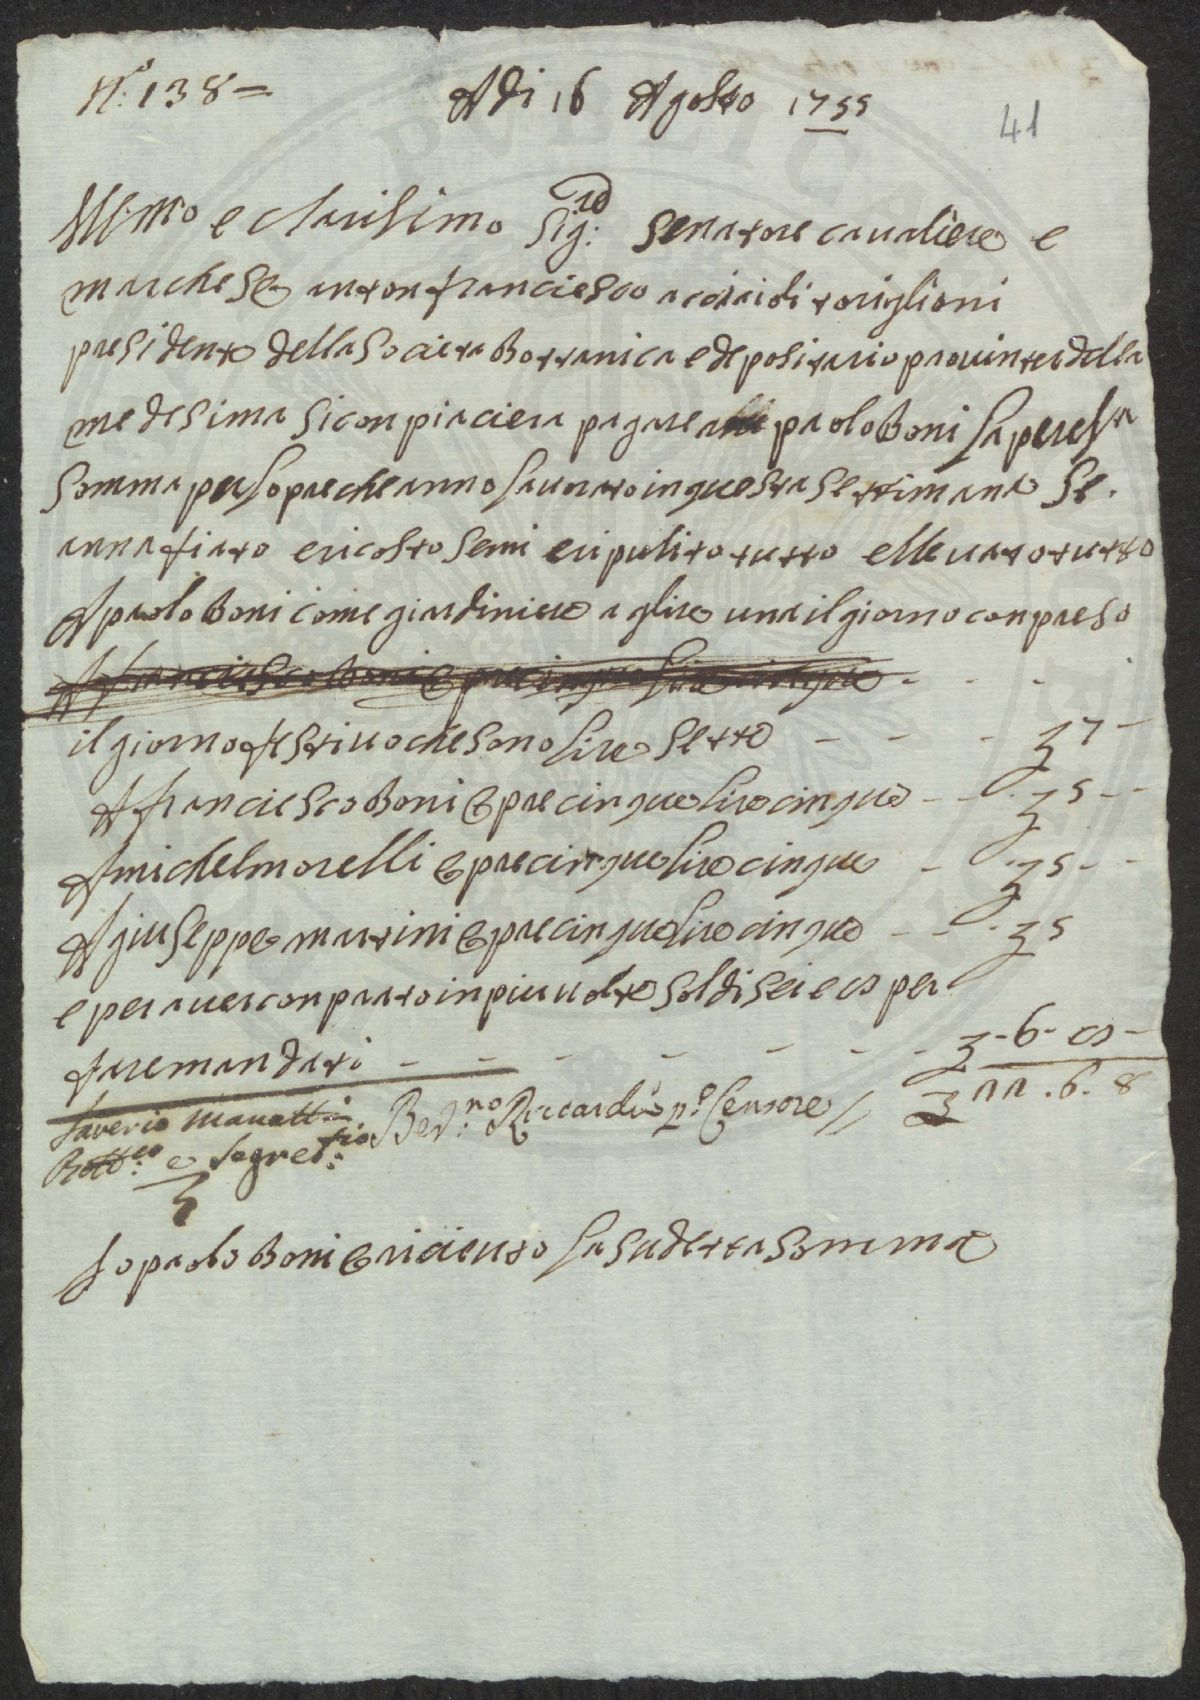 N.o 138 =
Adi 16 Agosto 1755
41
Ill:mo e clarisimo Sig:re Senatore cavaliere e
marchese antonfranciesco aciaidi torigliani
presidente della Societa Bottanica e depositario provinter della
medesima si conpiaciera pagare paolo Boni la presta
Somma per lopre che anno lavorato in questa Settimana Si.
annafiato e ricolto semi e ripulito tutto e llevato tutto
A paolo Boni come giardiniere a glire una il giorno conpreso
A franciesco Boni e pre cinque lire cinque - - -
il giorno festivo che sono lire Sette - - - 7 -
A franciesco Boni e pre cinque lire cinque - - 5 - -
A michel morelli e pre cinque lire cinque - 5 - -
A giuseppe martini e pre cinque lire cinque - - 5
e per aver conprato in piu volte soldi sei e 8 per
fare mandati - - - - - - - 6 - 8 -
22 . 6 . 8
Saverio Manetti
Bott:co e Segret:rio
Bed:no Riccardi p.o Censore
Io paolo Boni e riceuto la sudetta somma